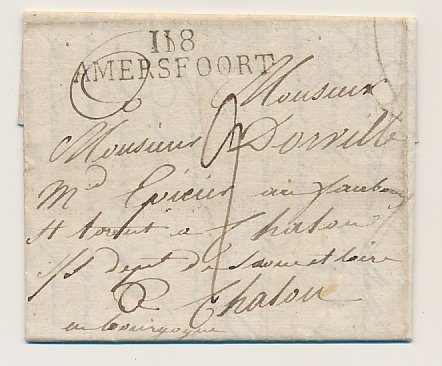 118
AMERSFOORT
Monsieur
Monsieur Dorville
Md Epicier au faubourg
St Laurent a Chalon
s/s dept de Saone et Loire
a Chalon
en bourgogne